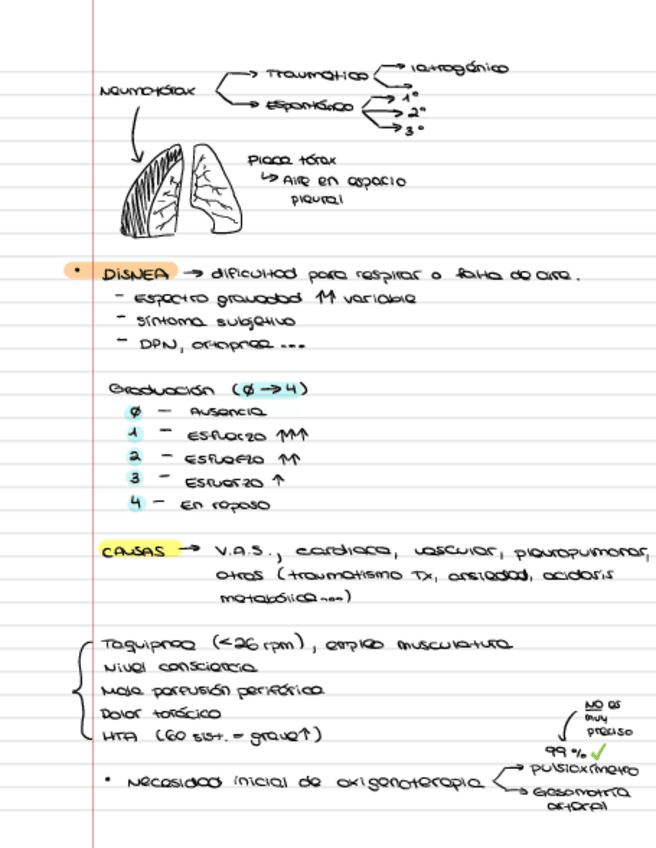 Neumotórax
Traumático
Iatrogénico
Espontáneo
1º
2º
3º
Placa tórax
↳ Aire en espacio
pleural
• DISNEA → dificultad para respirar o falta de aire.
- Espectro gravedad ↑↑ variable
- Síntoma subjetivo
- DPN, ortopnea ...
Graduación (0 → 4)
0 - Ausencia
1 - Esfuerzo ↑↑↑
2 - Esfuerzo ↑↑
3 - Esfuerzo ↑
4 - En reposo
CAUSAS → V.A.S., cardiaca, vascular, pleuropulmonar,
otras (traumatismo Tx, ansiedad, acidosis
metabólica...)
Taquipnea (<26 rpm), empleo musculatura
Nivel consciencia
Mala perfusión periférica
Dolor torácico
HTA (60 sist. = grave↑)
NO es
muy
preciso
99% ✓
• Necesidad inicial de oxigenoterapia
→ Pulsioxímetro
→ Gasometría
arterial